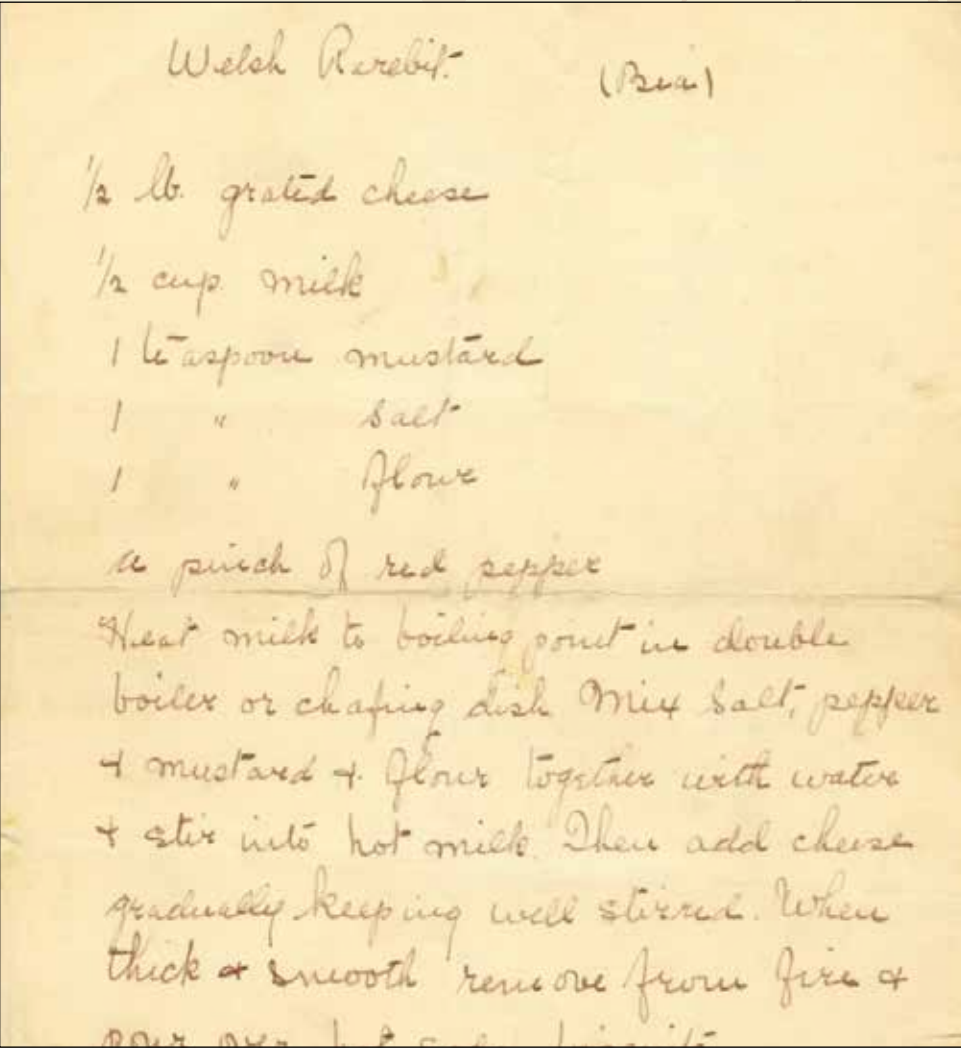 Welsh Rarebit.
½ lb. grated cheese
½ cup milk
1 teaspoon mustard
1 " salt
1 " flour
a pinch of red pepper
Heat milk to boiling point in double
boiler or chafing dish Mix salt, pepper
& mustard & flour together with water
& stir into hot milk. Then add cheese
gradually keeping well stirred. When
thick & smooth remove from fire &
pour over hot